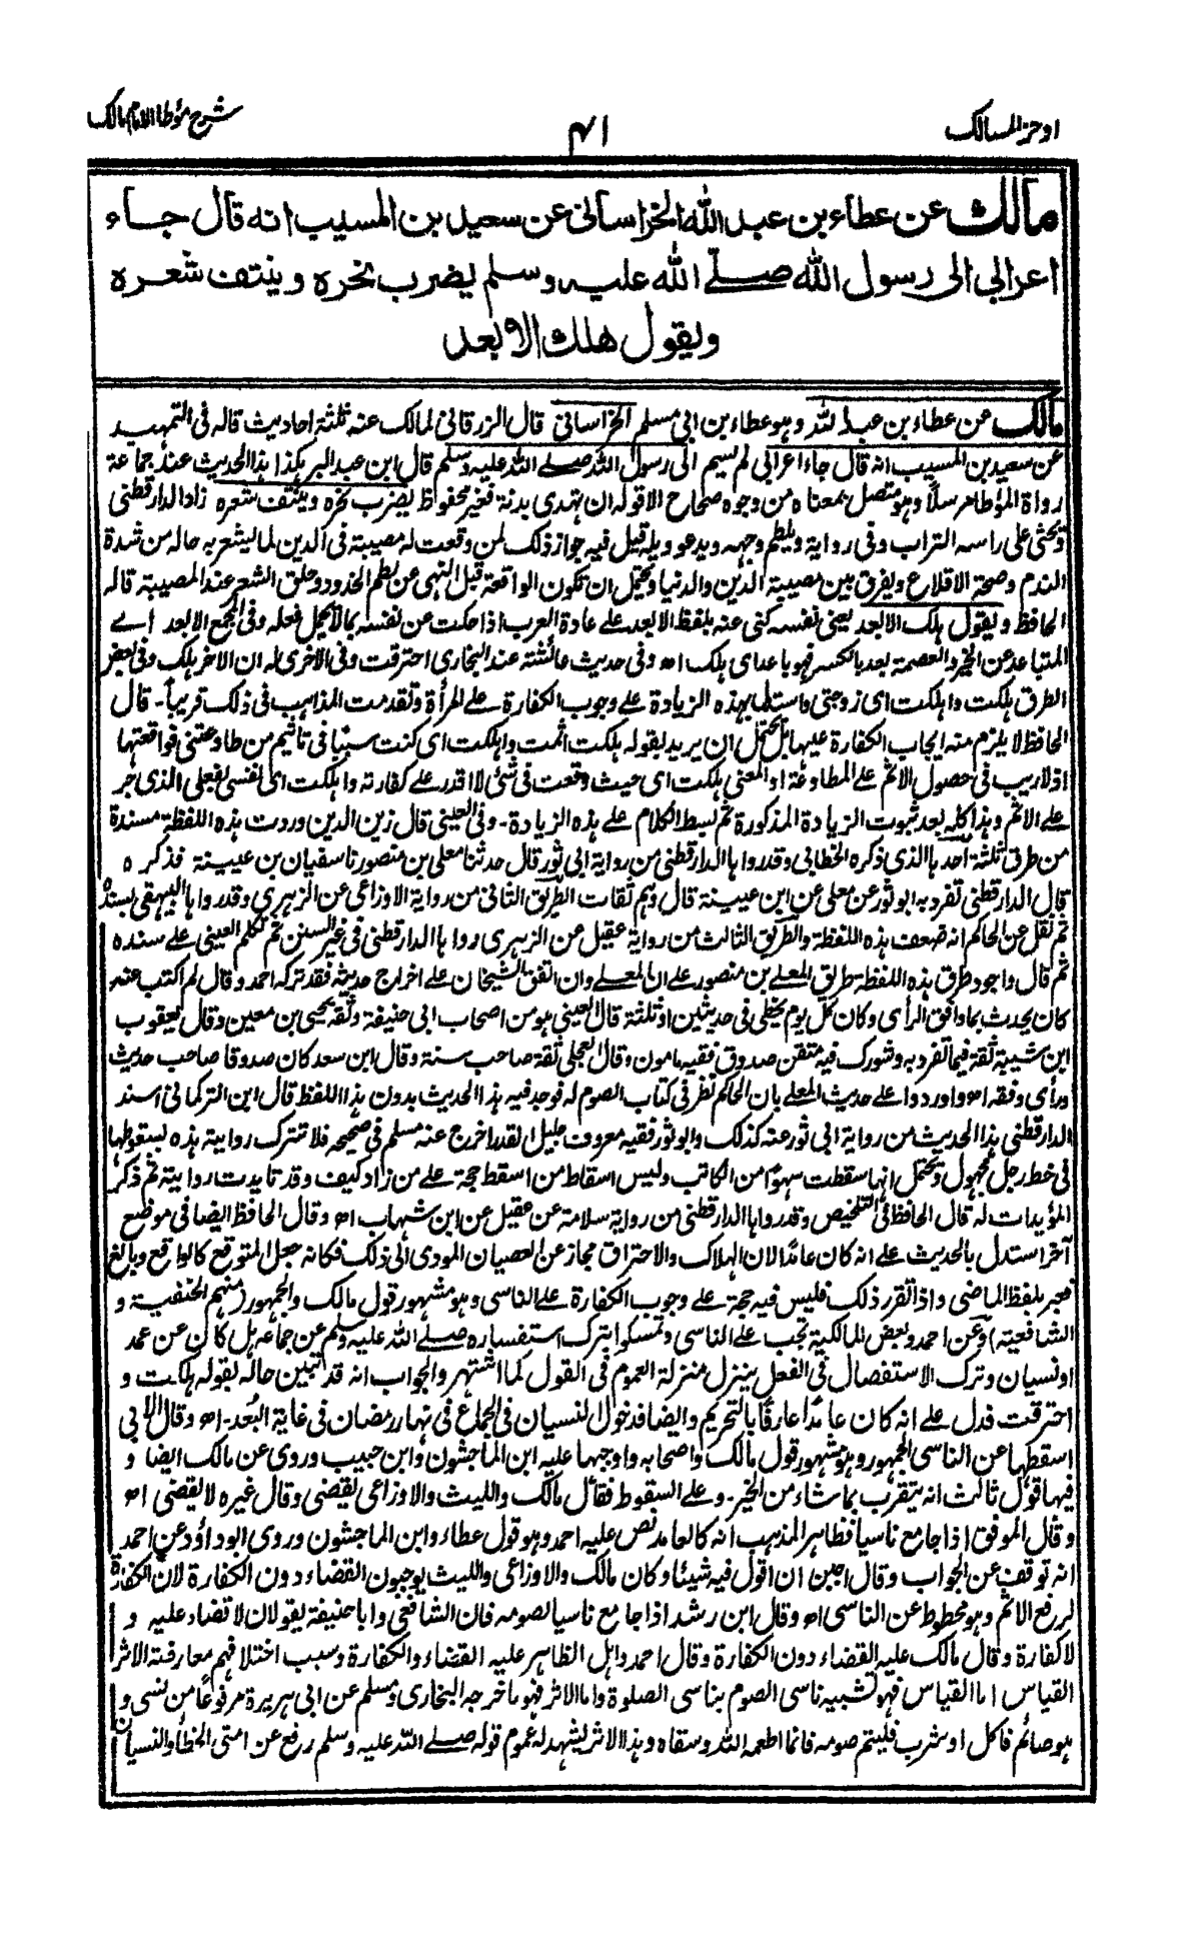 اوجز المسالك
٤١
شرح مؤطا الامام مالك
مالك عن عطاء بن عبد الله الخراسانى عن سعيد بن المسيب انه قال جاء
اعرابى الى رسول الله صلى الله عليه وسلم يضرب نحره وينتف شعره
ويقول هلك الابعد
مالك عن عطاء بن عبد الله وهو عطاء بن ابى مسلم الخراسانى قال الزرقانى لمالك عنه ثلثة احاديث قاله فى التمهيد
عن سعيد بن المسيب انه قال جاء اعرابى لم يسم الى رسول الله صلے الله عليه وسلم قال ابن عبد البر هكذا هذا الحديث عند جماعة
رواة المؤطا مرسلاً وهو متصل بمعناه من وجوه صحاح الا قوله ان تهدى بدنة فغير محفوظ يضرب نحره وينتف شعره زاد الدارقطنى
ويحثى على راسه التراب وفى رواية ويلطم وجهه ويدعو ويله قيل فيه جواز ذلك لمن وقعت له مصيبة فى الدين لما يشعر به حاله من شدة
الندم وصحة الاقلاع ويفرق بين مصيبة الدين والدنيا ويحتمل ان تكون الواقعة قبل النهى عن لطم الخدود وحلق الشعر عند المصيبة قاله
الحافظ ويقول هلك الابعد يعنى نفسه كنى عنه بلفظ الابعد على عادة العرب اذا حكت عن نفسه بما لا يجمل فعله وفى المجمع الابعد اے
المتباعد عن الخير والعصمة بعد بالكسر فهو باعد اى هلك اه وفى حديث عائشة عند البخارى احترقت وفى الاخرى له ان الاخر هلك وفى بعض
الطرق هلكت واهلكت اى زوجتى واستدل بهذه الزيادة على وجوب الكفارة على المرأة وتقدمت المذاهب فى ذلك قريباً۔ قال
الحافظ لا يلزم منه ايجاب الكفارة عليها بل يحتمل ان يريد بقوله هلكت اثمت واهلكت اى كنت سببا فى تاثيم من طاوعتنى فواقعتها
اذ لا ريب فى حصول الاثم على المطاوعة او المعنى هلكت اى حيث وقعت فى شئ لا اقدر على كفارته واهلكت اى نفسى بفعلى الذى جر
على الاثم وهذا كله بعد ثبوت الزيادة المذكورة ثم بسط الكلام على هذه الزيادة۔ وفى العينى قال زين الدين وردت هذه اللفظة مسندة
من طرق ثلثة احدها الذى ذكره الخطابى وقد رواها الدارقطنى من رواية ابى ثور قال حدثنا معلى بن منصور نا سفيان بن عيينة فذكره
قال الدارقطنى تفرد به ابو ثور عن معلى عن ابن عيينة قال وهم ثقات الطريق الثانى من رواية الاوزاعى عن الزهرى وقد رواها البيهقى بسنده
ثم نقل عن الحاكم انه ضعف هذه اللفظة والطريق الثالث من رواية عقيل عن الزهرى رواها الدارقطنى فى غير السنن ثم تكلم العينى على سنده
ثم قال واجود طرق هذه اللفظة طريق المعلے بن منصور على ان المعلے وان اتفق الشيخان على اخراج حديثه فقد تركه احمد وقال لم اكتب عنه
كان يحدث بما وافق الرأى وكان كل يوم يخطى فى حديثين او ثلثة قال العينى هو من اصحاب ابى حنيفة وثقه يحيى بن معين وقال يعقوب
ابن شيبة ثقة فيما تفرد به وشورك فيه متقن صدوق فقيه مامون وقال العجلى ثقة صاحب سنة وقال ابن سعد كان صدوقا صاحب حديث
ورأى وفقه اه واوردوا على حديث المعلے بان الحاكم نظر فى كتاب الصوم له فوجد فيه هذا الحديث بدون هذا اللفظ قال ابن التركمانى اسند
الدارقطنى هذا الحديث من رواية ابى ثور عنه كذلك وابو ثور فقيه معروف جليل القدر اخرج عنه مسلم فى صحيحه فلا تترك روايته هذه لسقوطها
فى خط رجل مجهول ويحتمل انها سقطت سهوًا من الكاتب وليس اسقاط من اسقط حجة على من زاد كيف وقد تايدت روايته ثم ذكر
المؤيدات له قال الحافظ فى التلخيص وقد رواها الدارقطنى من رواية سلامة عن عقيل عن ابن شهاب اه وقال الحافظ ايضا فى موضع
آخر استدل بالحديث على انه كان عامدًا لان الهلاك والاحتراق مجاز عن العصيان المودى الى ذلك فكانه جعل المتوقع كالواقع وبالغ
فعبر بلفظ الماضى واذا تقرر ذلك فليس فيه حجة على وجوب الكفارة على الناسى وهو مشهور قول مالك والجمهور (منهم الحنفية و
الشافعية) وعن احمد وبعض المالكية تجب على الناسى وتمسكوا بترك استفساره صلے الله عليه وسلم عن جماعه هل كان عن عمد
او نسيان وترك الاستفصال فى الفعل ينزل منزلة العموم فى القول كما اشتهر والجواب انه قد تبين حاله بقوله هلكت و
احترقت فدل على انه كان عامدًا عارفًا بالتحريم وايضا فدخول النسيان فى الجماع فى نهار رمضان فى غاية البُعد۔ اه وقال الابى
اسقطها عن الناسى الجمهور وهو مشهور قول مالك واصحابه واوجبها عليه ابن الماجشون وابن حبيب وروى عن مالك ايضا و
فيها قول ثالث انه يتقرب بما شاء من الخير۔ وعلى السقوط فقال مالك والليث والاوزاعى يقضى وقال غيره لا يقضى اه
وقال الموفق اذا جامع ناسيا فظاهر المذهب انه كالعامد نص عليه احمد وهو قول عطاء وابن الماجشون وروى ابو داؤد عن احمد
انه توقف عن الجواب وقال اجبن ان اقول فيه شيئا وكان مالك والاوزاعى والليث يوجبون القضاء دون الكفارة لان الكفارة
لرفع الاثم وهو محطوط عن الناسى اه وقال ابن رشد اذا جامع ناسيا لصومه فان الشافعى وابا حنيفة يقولان لا قضاء عليه و
لا كفارة وقال مالك عليه القضاء دون الكفارة وقال احمد واهل الظاهر عليه القضاء والكفارة وسبب اختلافهم معارضة الاثر
القياس اما القياس فهو تشبيه ناسى الصوم بناسى الصلوة واما الاثر فهو ما خرجه البخارى ومسلم عن ابى هريرة مرفوعًا من نسى و
هو صائم فاكل او شرب فليتم صومه فانما اطعمه الله وسقاه وهذا الاثر يشهد له عموم قوله صلے الله عليه وسلم رفع عن امتى الخطأ والنسيان